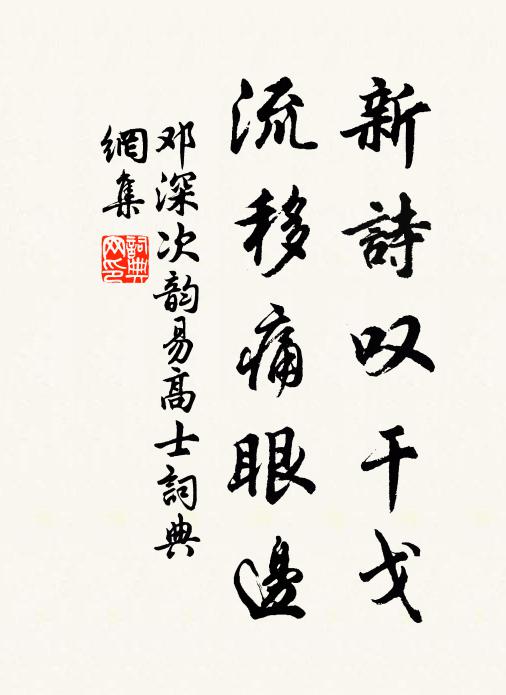 新詩叹干戈
流移痛眼邊
邓深次韵易高士詞典
網集
詞典
网印